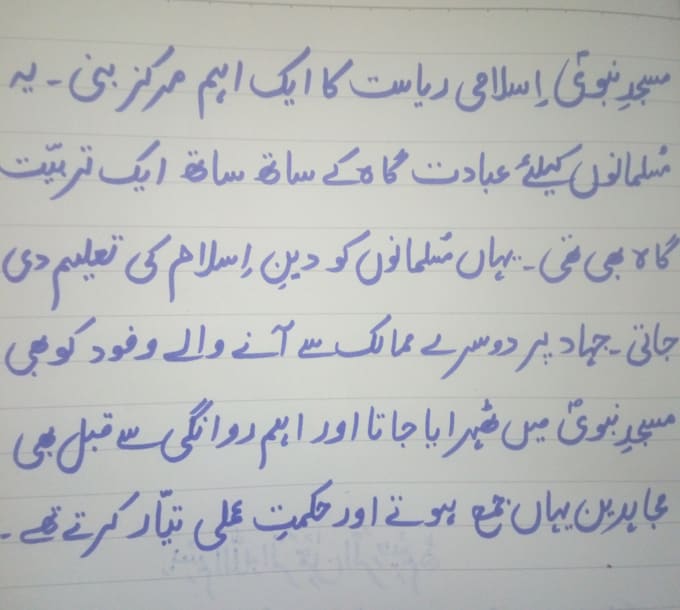 مسجدِ نبویؐ اِسلامی ریاست کا ایک اہم مرکز بنی ۔ یہ
مُسلمانوں کیلئے عبادت گاہ کے ساتھ ساتھ ایک تربیّت
گاہ بھی تھی ۔ یہاں مُسلمانوں کو دینِ اِسلام کی تعلیم دی
جاتی ۔ جہاد پر دوسرے ممالک سے آنے والے وفود کو بھی
مسجدِ نبویؐ میں ٹھہرایا جاتا اور اہم روانگی سے قبل بھی
مجاہدین یہاں جمع ہوتے اور حکمتِ عملی تیّار کرتے تھے ۔